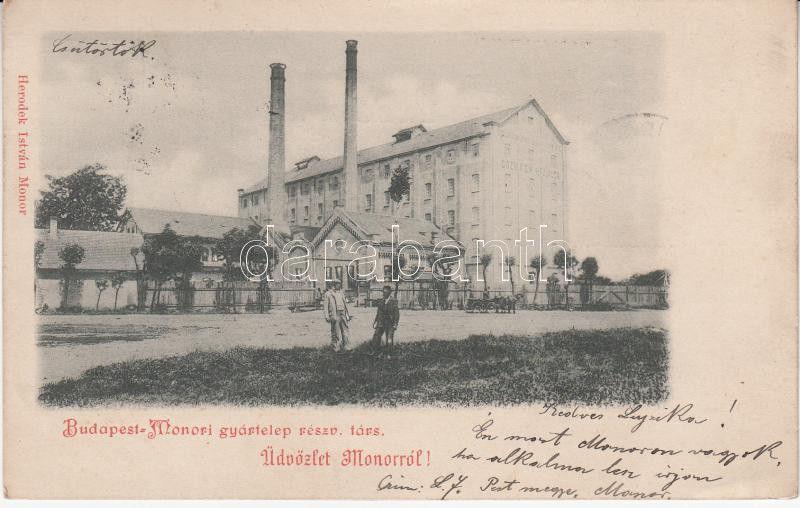 Csütörtök.
Herodek István Monor
darabanth
Budapest-Monori gyártelep részv. társ.
Üdvözlet Monorról!
Kedves Lujzika!
Én most Monoron vagyok,
ha alkalma lesz irjon
Czim: L. J. Pest megye. Monor.